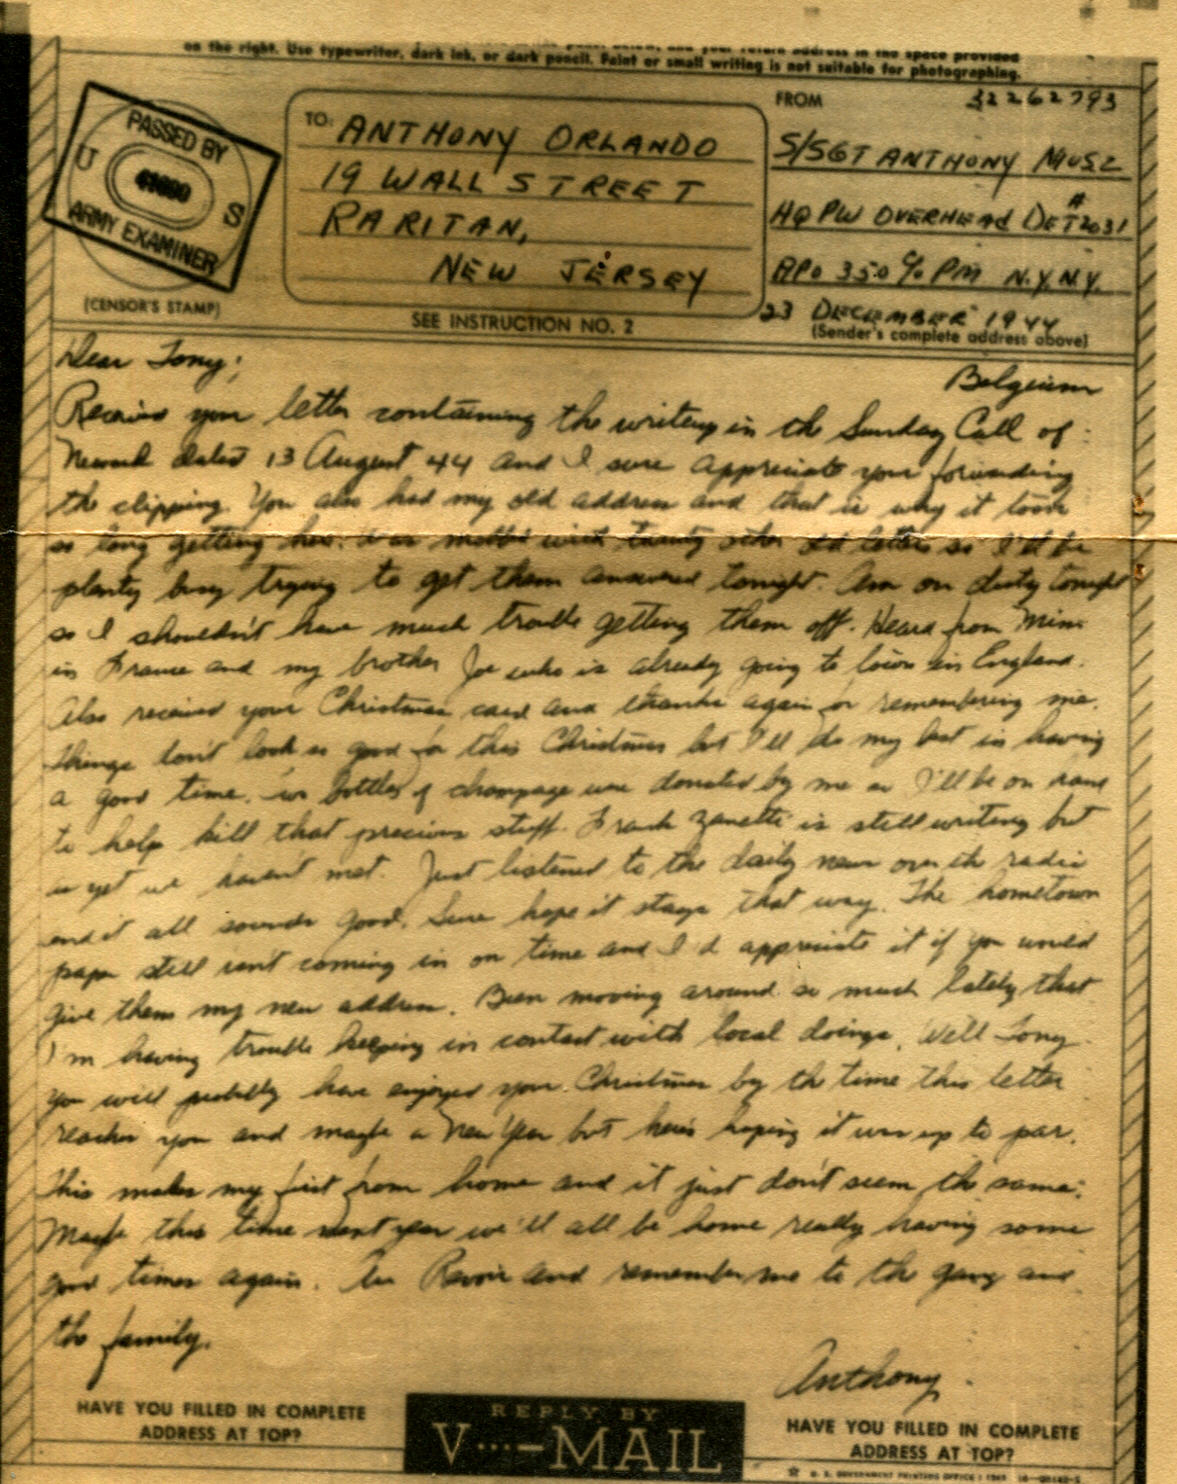 on the right. Use typewriter, dark ink, or dark pencil. Faint or small writing is not suitable for photographing.
PASSED BY
U S
ARMY EXAMINER
(CENSOR'S STAMP)
TO:
ANTHONY ORLANDO
19 WALL STREET
RARITAN,
NEW JERSEY
SEE INSTRUCTION NO. 2
FROM
32262793
S/SGT ANTHONY MUSZ
HQ PW OVERHEAD DET # 2031
APO 350 % PM N.Y. N.Y.
23 DECEMBER 1944
(Sender's complete address above)
Belgium
Dear Tony:
Received your letter containing the writeup in the Sunday Call of
Newark dated 13 August 44 and I sure appreciate your forwarding
the clipping. You also had my old address and that is why it took
so long getting here. with twenty other old letters so I'll be
plenty busy trying to get them answered tonight. Am on duty tonight
so I shouldn't have much trouble getting them off. Heard from
in France and my brother Joe who is already going to town in England.
Also received your Christmas card and thanks again for remembering me.
Things don't look so good for this Christmas but I'll do my best in having
a good time. bottles of champage were donated by me so I'll be on hand
to help kill that precious stuff. Frank Zanetti is still writing but
as yet we haven't met. Just listened to the daily news over the radio
and it all sounds good. Sure hope it stays that way. The hometown
paper still isn't coming in on time and I'd appreciate it if you would
give them my new address. Been moving around so much lately that
I'm having trouble keeping in contact with local doings. Well Tony
you will probably have enjoyed your Christmas by the time this letter
reaches you and maybe a New Year but here's hoping it was up to par.
This makes my first from home and it just don't seem the same.
Maybe this time next year we'll all be home really having some
good times again. Au Revoir and remember me to the gang and
the family.
Anthony
HAVE YOU FILLED IN COMPLETE
ADDRESS AT TOP?
REPLY BY
V···—MAIL
HAVE YOU FILLED IN COMPLETE
ADDRESS AT TOP?